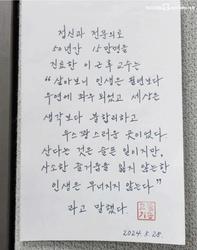 정신과 전문의로
50년간 15만명을
진료한 이근후교수는
"살아보니 인생은 필연보다
우연에 좌우되었고 세상은
생각보다 불합리하고
우스꽝스러운 곳이었다.
산다는 것은 슬픈 일이지만,
사소한 즐거움을 잃지 않는한
인생은 무너지지 않는다"
라고 말했다.
2024. 5. 28.